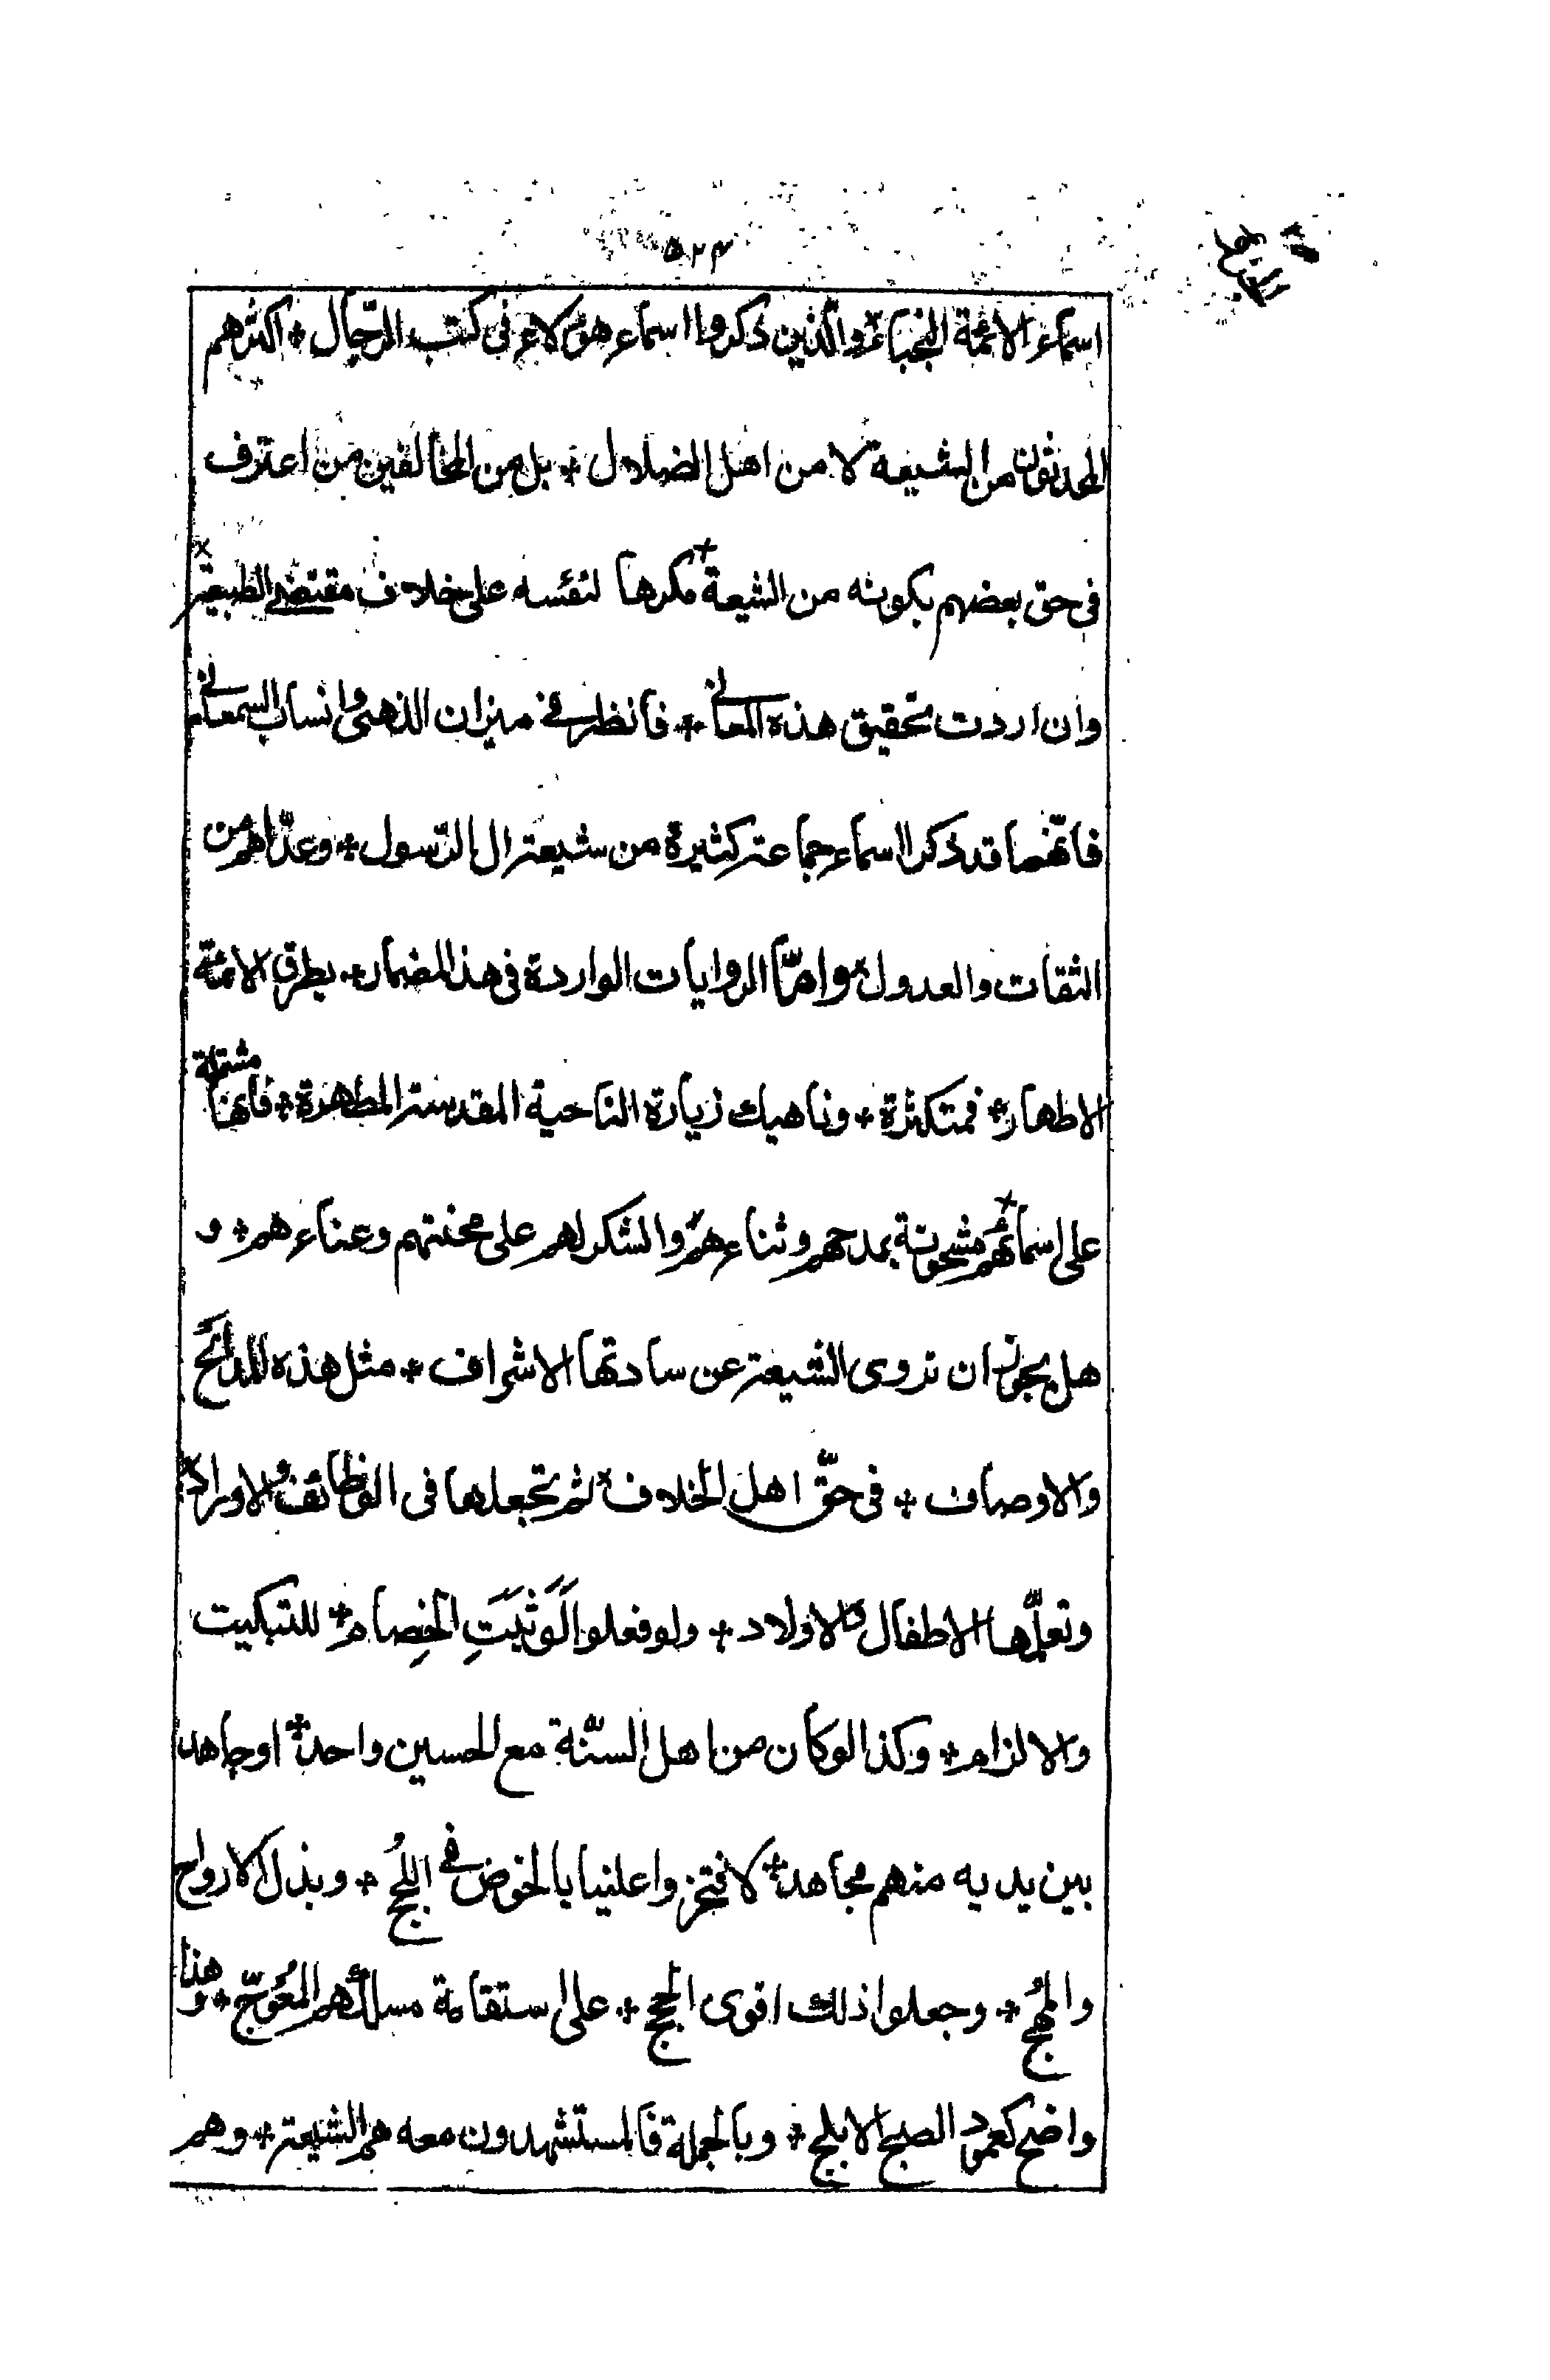 ۵۲۴
اسماء الائمة النجباء والّذين ذكروا اسماء هؤلاء فى كتب الرّجال + اكثرهم
المحدثون من الشيعة لا من اهل الضلال + بل من المخالفين من اعترف
فى حق بعضهم بكونه من الشيعة + مكرها لنفسه على خلاف مقتضى الطبيعة ×
وان اردت تحقيق هذه المعانى + فانظر فى ميزان الذهبى وانساب السمعانى
فانّهما قد ذكرا اسماء جماعة كثيرة من شيعة ال الرّسول + وعدّاهم من
الثقات والعدول + وامّا الروايات الواردة فى هذا المضمار + بطرق الائمّة
الاطهار + فمتكثرة + وناهيك زيارة الناحية المقدسة المطهرة + فانّها مشتملة
على اسمائهم + مشحونة بمدحهم وثناءهم + والشكر لهم على محنتهم وعناءهم + و
هل يجوز ان تروى الشيعة عن سادتها الاشراف + مثل هذه المدائح
والاوصاف + فى حقّ اهل الخلاف + ثم تجعلها فى الوظائف والاوراد ×
وتعلّمها الاطفال والاولاد + ولو فعلوا لَوَثَبَتِ الخِصام + للتبكيت
والالزام + وكذا لو كان من اهل السنّة مع الحسين واحد + او جاهد
بين يديه منهم مجاهد + لافتخروا علينا بالخوض فى اللُجج + وبذل الارواح
والمُهج + وجعلوا ذلك اقوى الحجج + على استقامة مسلكهم المُعَوجّ + وهذا
واضح كعمود الصبح الابلج + وبالجملة فالمستشهدون معه هم الشيعة + وهم